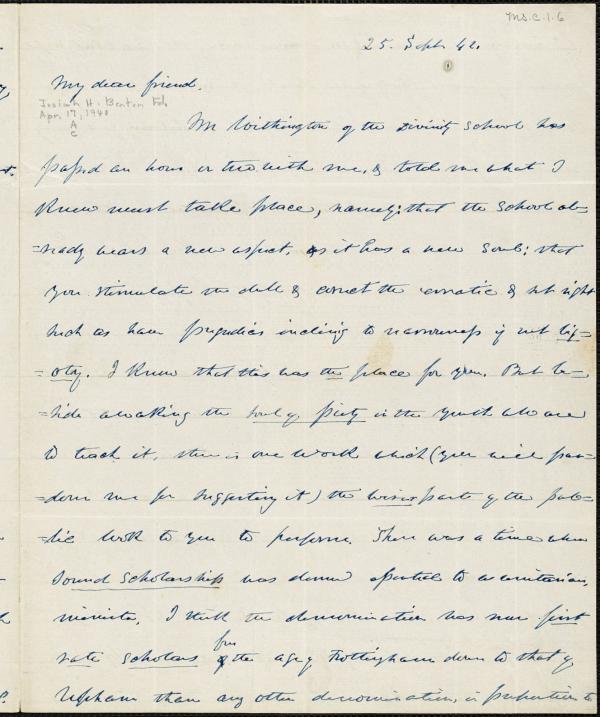 Ms.C.1.6
25. Sept 42.
My dear friend.
Josiah H. Benton Fd.
Apr. 17, 1940
A
C
Mr Withington of the Divinity School has
passd an hour or two with me, & told me what I
knew must take place, namely: that the School al-
-ready wears a new aspect, as it has a new soul: that
you stimulate the dull & correct the erratic & set right
such as have prejudices inclining to narrowness if not big-
-otry. I knew that this was the place for you. But be-
-side awaking the soul of piety in the youth who are
to teach it, there is one work which (you will par-
-don me for suggesting it) the wiser part of the pub-
-lic look to you to perform. There was a time when
sound scholarship was deemd essential to a unitarian
minister. I think the denomination has more first
rate scholars from the age of Frothingham down to that of
Upham than any other denomination, in proportion to